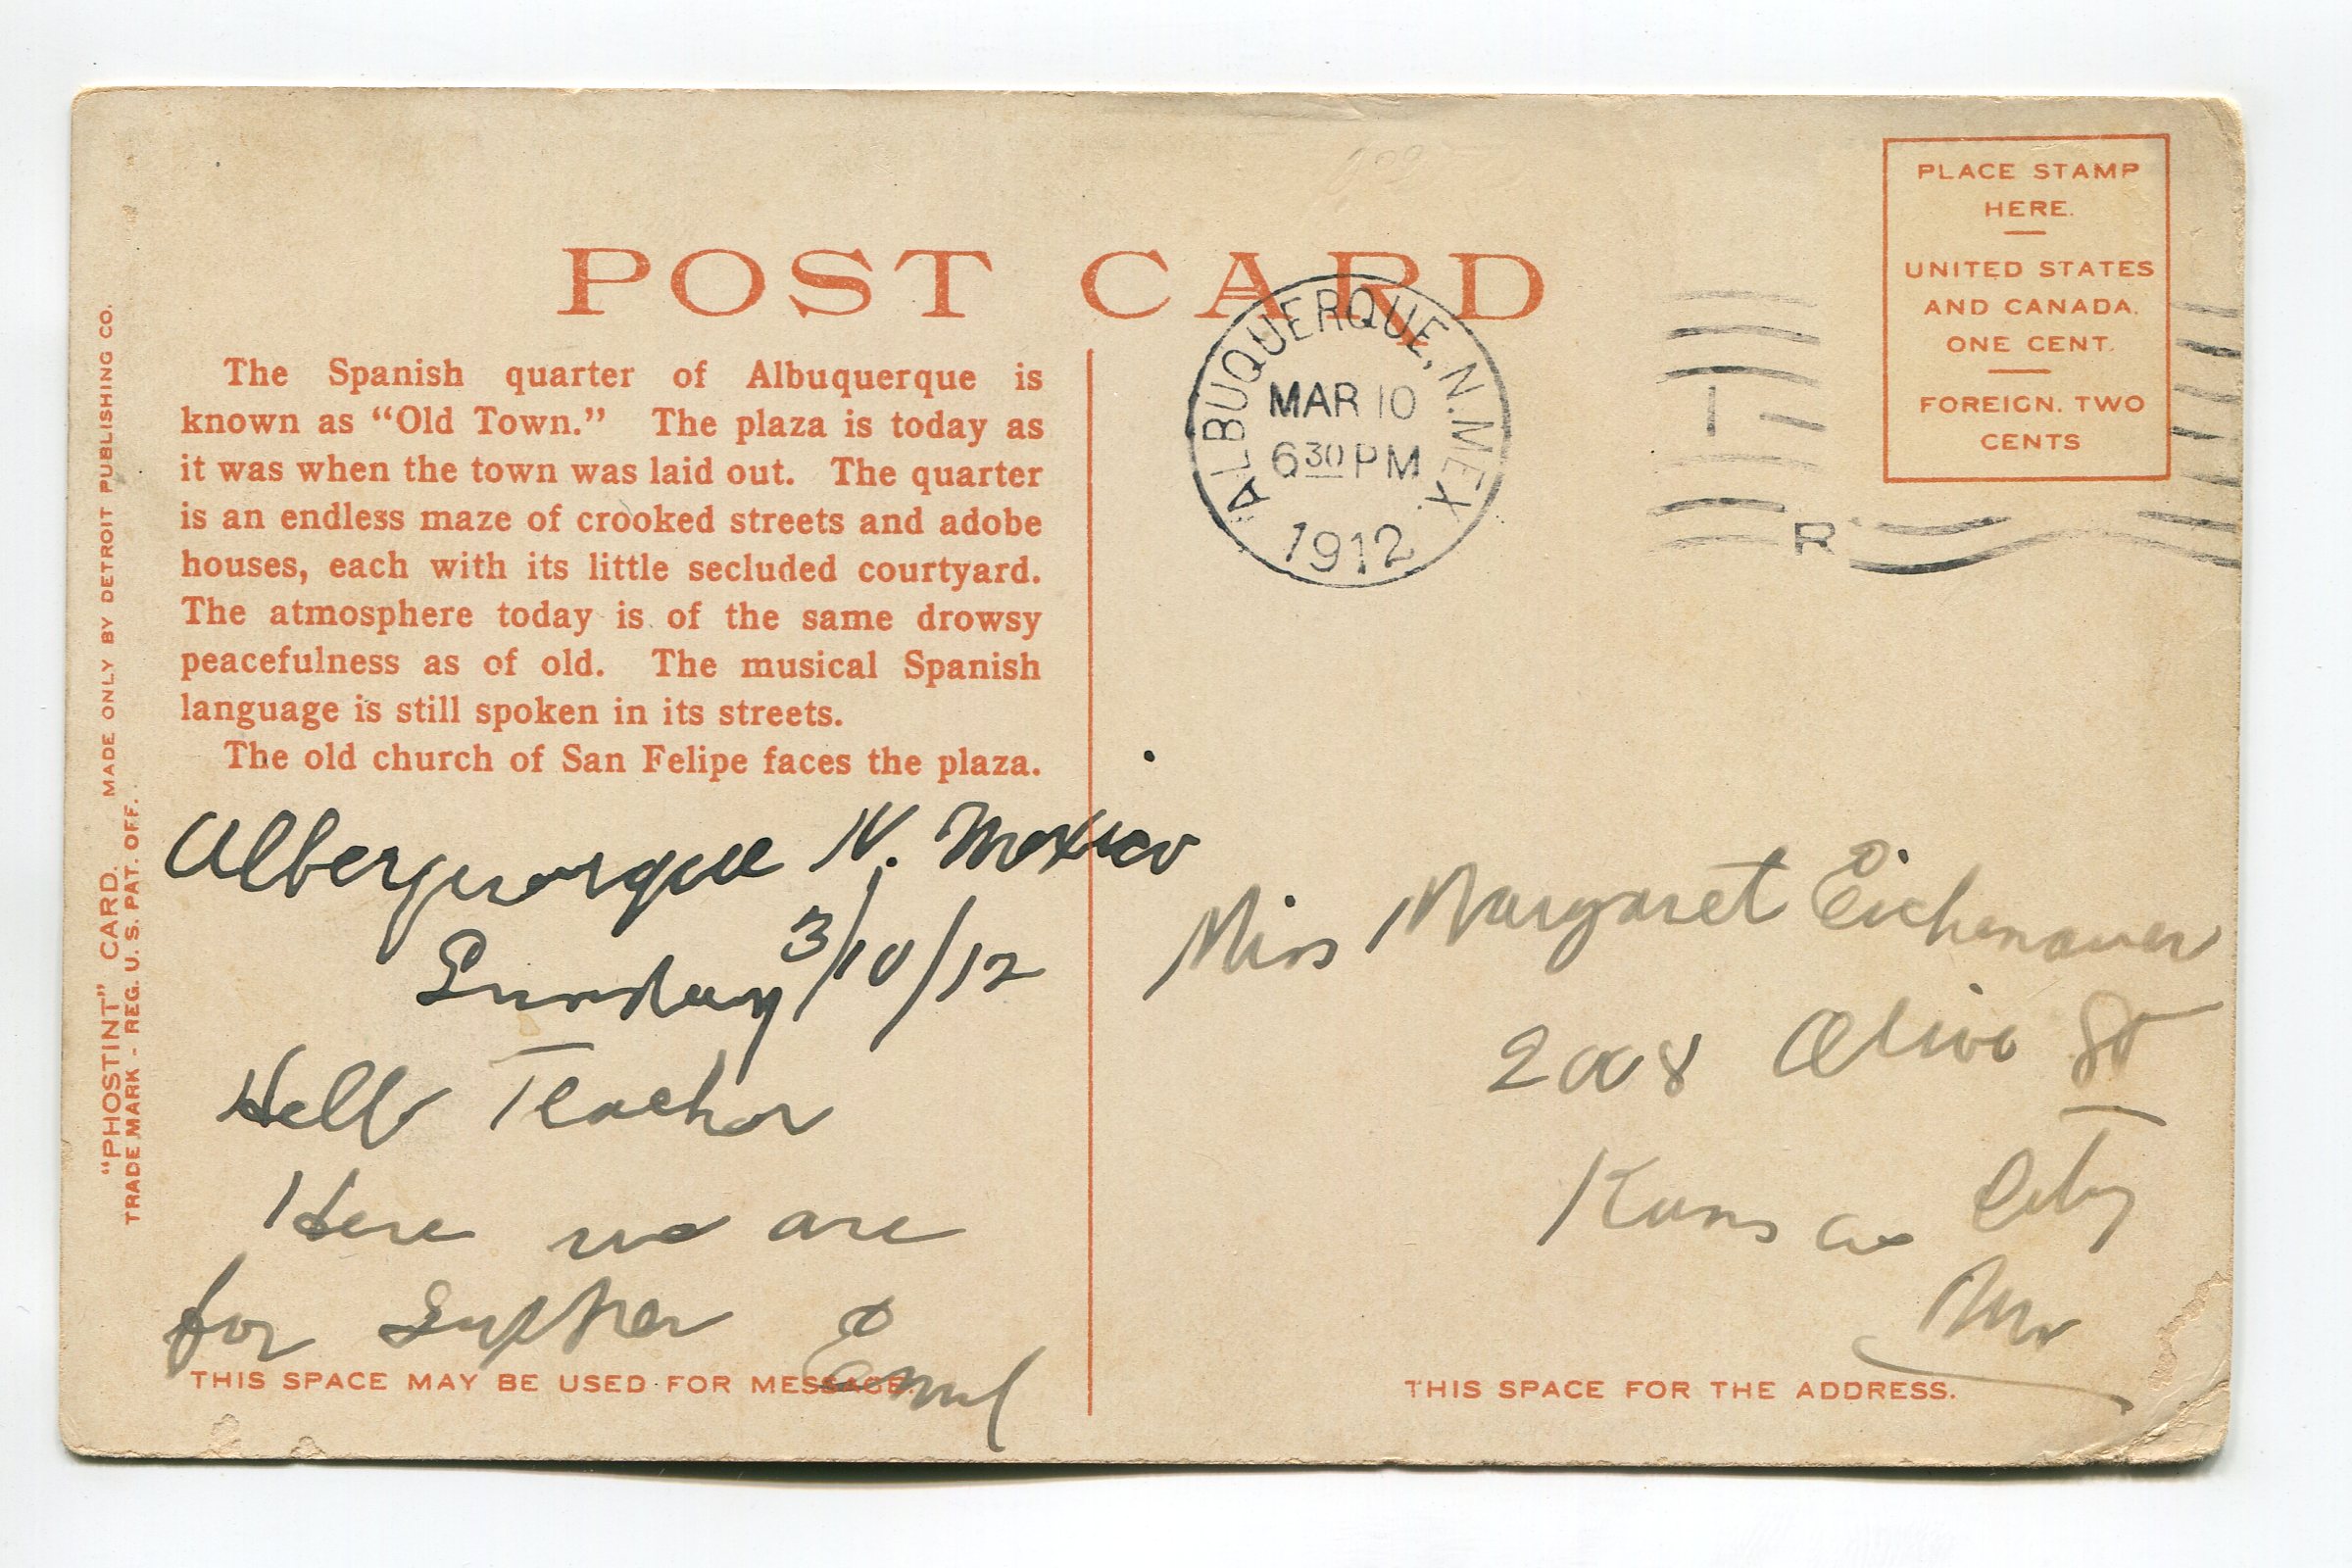 POST CARD
PLACE STAMP
HERE.
UNITED STATES
AND CANADA.
ONE CENT.
FOREIGN. TWO
CENTS
ALBUQUERQUE, N. MEX.
MAR 10
6 30 PM
1912
R
The Spanish quarter of Albuquerque is
known as “Old Town.” The plaza is today as
it was when the town was laid out. The quarter
is an endless maze of crooked streets and adobe
houses, each with its little secluded courtyard.
The atmosphere today is of the same drowsy
peacefulness as of old. The musical Spanish
language is still spoken in its streets.
The old church of San Felipe faces the plaza.
"PHOSTINT" CARD. MADE ONLY BY DETROIT PUBLISHING CO.
TRADE MARK - REG. U. S. PAT. OFF.
N. Mexico
Sunday 3/10/12
Hello Teacher
Here we are
for Supper
Emil
THIS SPACE MAY BE USED FOR MESSAGE.
Miss Margaret Eichenauer
2008 Olive St
Kansas City
Mo
THIS SPACE FOR THE ADDRESS.